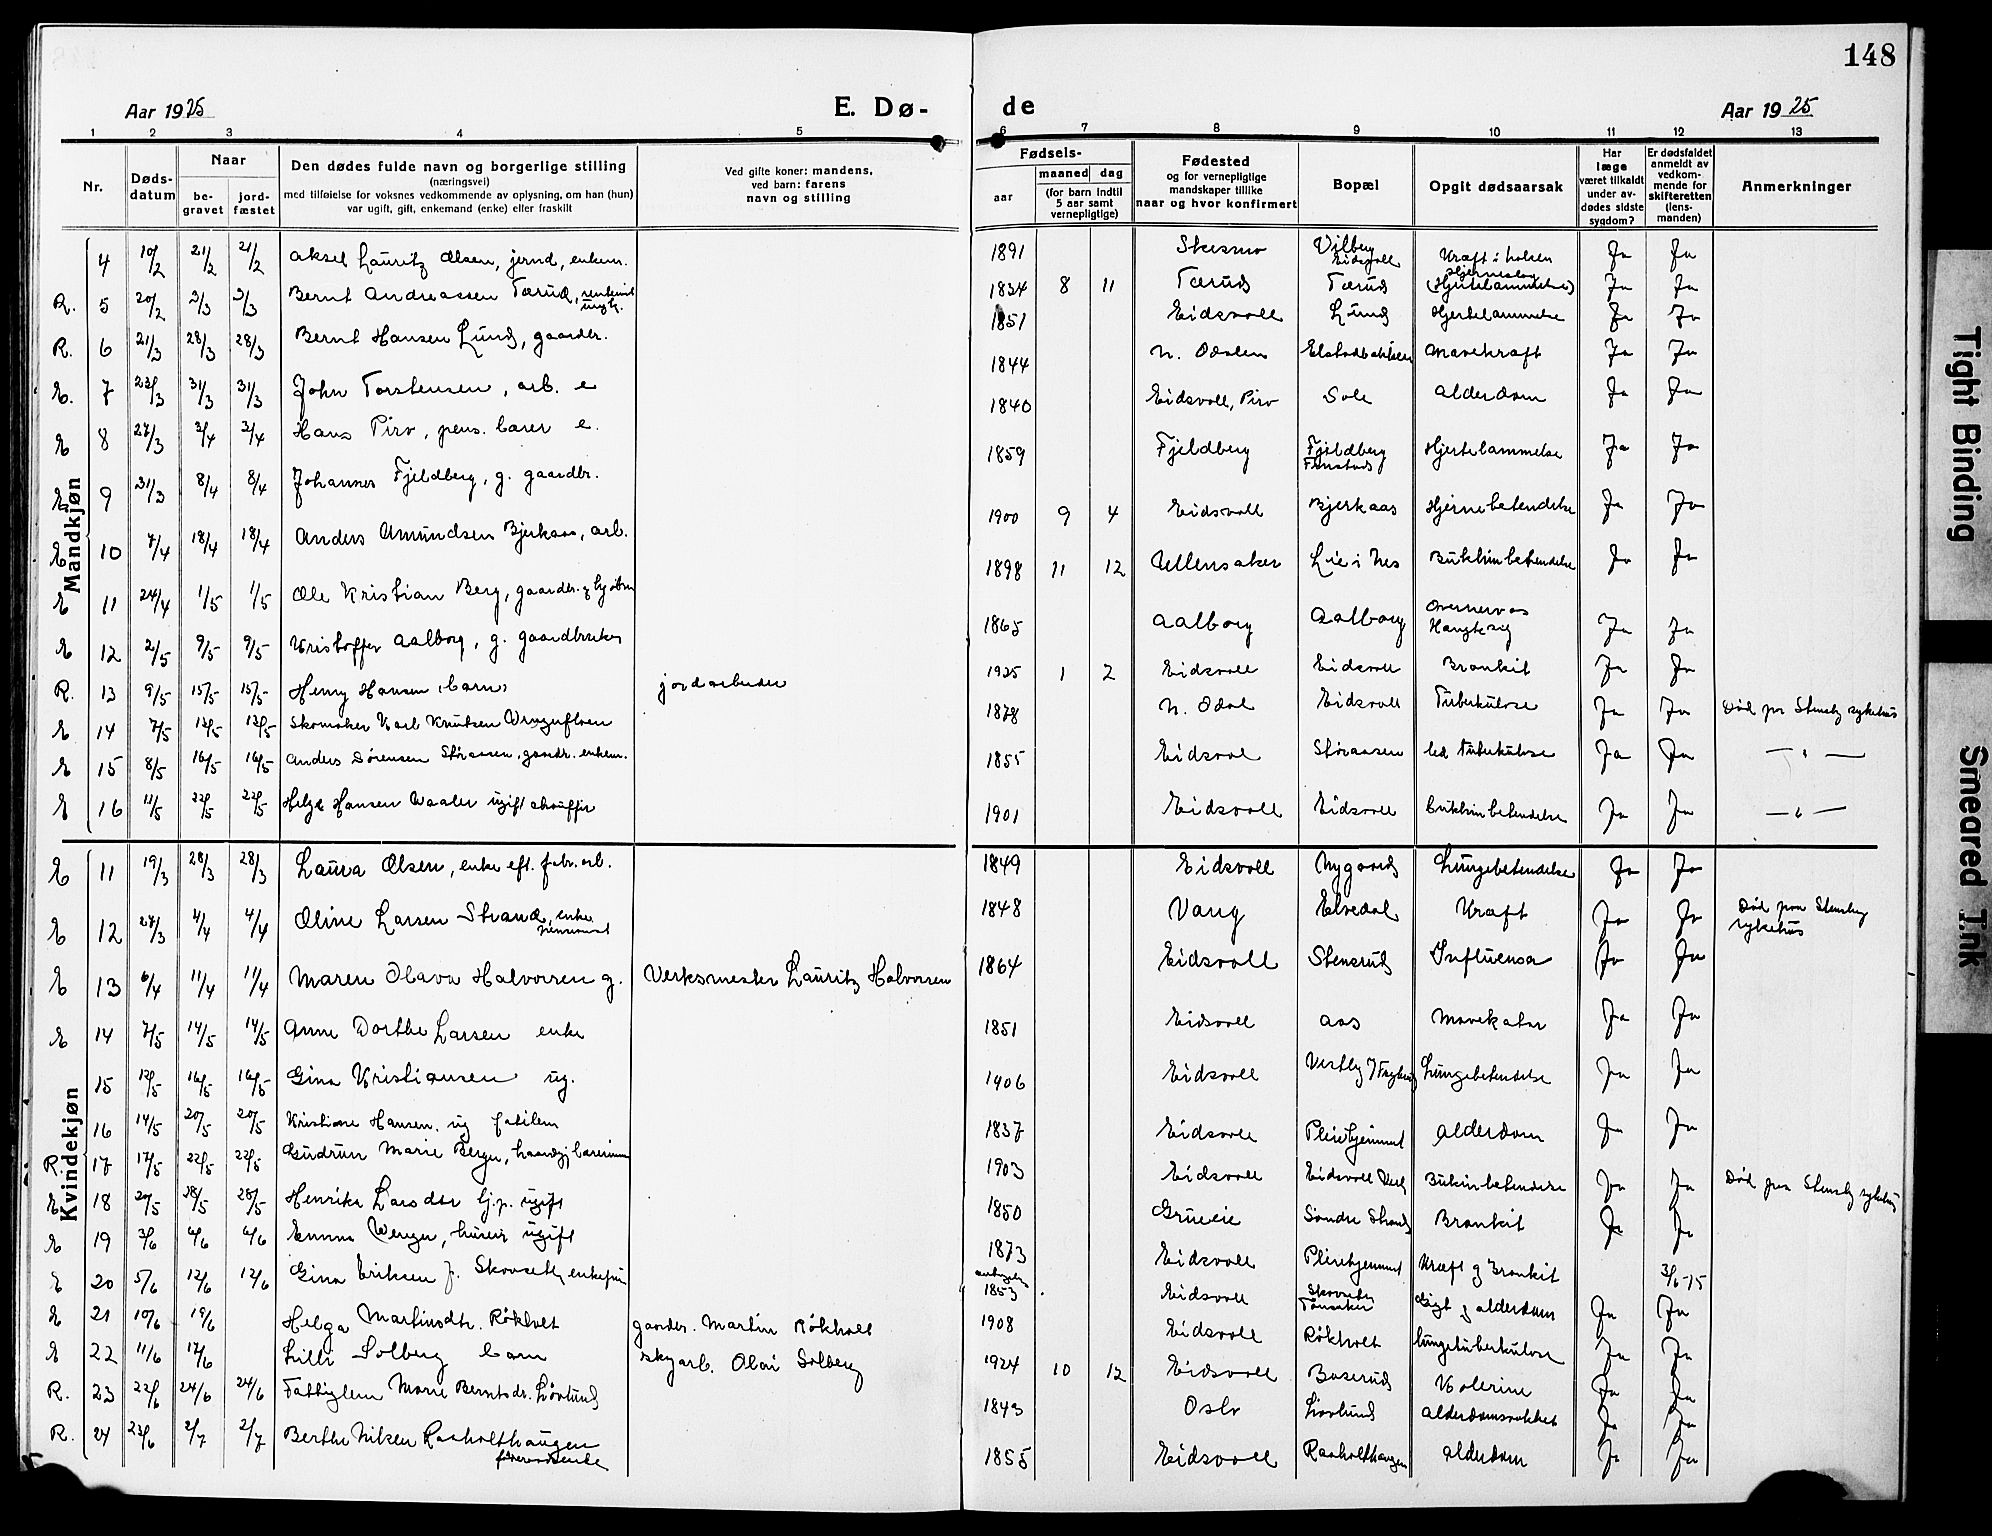 148
Aar 1925
E. Dø-
de
Aar 1925
1 2 3 4 5 6 7 8 9 10 11 12 13
Nr.
Døds-
datum
Naar
be-
gravet
jord-
fæstet
Den dødes fulde navn og borgerlige stilling
(næringsvei)
med tilføielse for voksnes vedkommende av oplysning, om han (hun)
var ugift, gift, enkemand (enke) eller fraskilt
Ved gifte koner: mandens,
ved barn: farens
navn og stilling
Fødsels-
aar
maaned dag
(for barn indtil
5 aar samt
vernepligtige)
Fødested
og for vernepligtige
mandskaper tillike
naar og hvor konfirmert
Bopæl
Opgit dødsaarsak
Har
læge
været tilkaldt
under av-
dødes sidste
sygdom?
Er dødsfaldet
anmeldt av
vedkom-
mende for
skifteretten
(lens-
manden)
Anmerkninger
Mandkjøn
4 10/2 21/2 21/2 Aksel Lauritz Olsen, enkem. 1891 Vilberg Eidsvoll Kræft i halsen Ja Ja
R. 5 20/2 3/3 3/3 Bernt Andreassen Tærud, ungk. 1834 8 11 Tærud Tærud Hjerneslag (Hjertelammelse) Ja Ja
R. 6 21/3 28/3 28/3 Bernt Hansen Lund, gaardbr. 1851 Eidsvoll Lund Hjertelammelse Ja Ja
E. 7 31/3 31/3 John Torstensen, arb. e 1844 N. Odalen Elstadbakken Mavekræft Ja Ja
E 8 27/3 3/4 3/4 Hans Piro, pens. e. 1840 Eidsvoll, Piro Sole Alderdom Ja Ja
E 9 31/3 8/4 8/4 Johannes Fjeldberg, g. gaardbr. 1859 Fjeldberg Fjeldberg Finstad Hjertelammelse Ja Ja
E 10 7/4 18/4 18/4 Anders Amundsen Bjerkaas, arb. 1900 9 4 Eidsvoll Bjerkaas Hjernebetendelse Ja Ja
E 11 24/4 1/5 1/5 Ole Kristian Berg, gaardbr. 1898 11 12 Ullensaker Lie i Nes Bukhinbetendelse Ja Ja
E 12 2/5 9/5 9/5 Kristoffer Aalborg, g. gaardbruker 1865 Aalborg Aalborg Ja Ja
R. 13 9/5 15/5 15/5 Henry Hansen (barn) jordarbeider 1925 1 2 Eidsvoll Eidsvoll Bronkit Ja Ja
E 14 7/5 Skomaker Karl Knutsen 1878 N. Odal Eidsvoll Tuberkulose Ja Ja Død paa Stensby sykehus
E 15 8/5 16/5 16/5 Anders Sørensen Støraasen, gaardbr. enkem. 1855 Eidsvoll Støraasen led tuberkulose Ja Ja — " —
E 16 11/5 22/5 22/5 Helge Hansen Waaler ugift chauffør 1901 Eidsvoll Eidsvoll bukhinbetendelse Ja Ja — " —
Kvindekjøn
E 11 19/3 28/3 28/3 Laura Olsen, enke eft. fabr. arb. 1849 Eidsvoll Nygaard Lungebetendelse Ja Ja
E 12 27/3 4/4 4/4 Oline Larsen Strand, enke pensionist 1848 Vang Elvedal Kræft Ja Ja Død paa Stensby sykehus
E 13 6/4 11/4 11/4 Maren Olava Halvorsen g. Verksmester Lauritz Halvorsen 1864 Eidsvoll Stensrud Influensa Ja Ja
E 14 7/5 14/5 14/5 Anne Dorthe Larsen enke 1851 Eidsvoll Aas Mavekatar Ja Ja
15 12/5 16/5 16/5 Gina Kristiansen ug. 1906 Eidsvoll Vestby Lungebetendelse Ja Ja
16 14/5 20/5 20/5 Kristiane Hansen, ug fattilem 1837 Eidsvoll Pleiehjemmet Alderdom Ja Ja
R. 17 17/5 22/5 22/5 Gudrun Marie Berger, 1903 Eidsvoll Eidsvoll Verk Bukhinbetendelse Ja Ja Død paa Stensby sykehus
E 18 28/5 28/5 Henrike Larsdtr ugift 1850 Grueie Søndre Strand Bronkit Ja Ja
E 19 3/6 6/6 6/6 Emma Wenger, ugift 1873 Eidsvoll Pleiehjemmet Kræft og Bronkit 3/6-15
E 20 5/6 12/6 12/6 Gina Eriksen f. Skovseth, 1853 Eidsvoll Skovseth Tønsaker Gigt og alderdom Ja Ja
E 21 10/6 19/6 Helga Martinsdtr. Røkholt gaardbr. Martin Røkholt 1908 Eidsvoll Røkholt lungetuberkulose Ja Ja
E 22 11/6 17/6 Lilli Solberg barn Olai Solberg 1924 10 12 Eidsvoll Baserud Kolerine Ja Ja
R. 23 22/6 24/6 24/6 Fattiglem Marie Berntsdr. Lövlund 1843 Oslo Lövlund Alderdomssvakhet Ja Ja
R. 24 23/6 2/7 2/7 Berthe Nilsen Raaholthaugen 1855 Eidsvoll Raaholthaugen Alderdom Ja Ja
Tight Binding
Smeared Ink